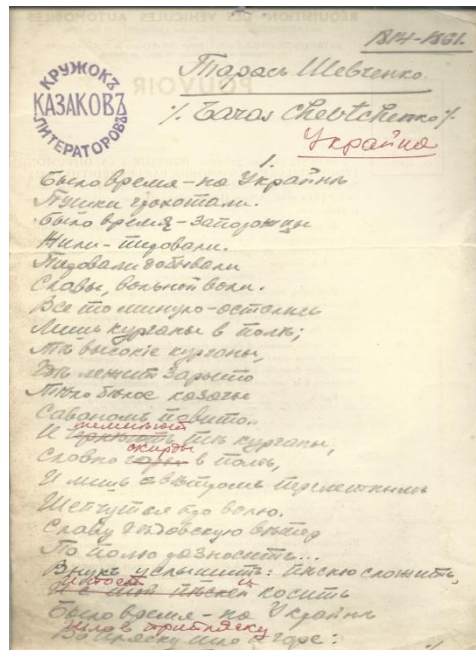 1814-1861.
Тарасъ Шевченко.
КРУЖОКЪ
КАЗАКОВЪ
ЛИТЕРАТОРОВЪ
·/. Taras Chevtchenko ·/.
Украйна
1.
Было время – на Украйнѣ
Пушки грохотали.
Было время – запорожцы
Жили – пировали.
Пировали добывали
Славы, вольной воли.
Все то минуло – остались
Лишь курганы в полѣ;
Тѣ высокіе курганы,
Гдѣ лежит зарыто
Тѣло бѣлое казачье
Саваномъ повито.
темнѣют
И тѣ курганы,
скирды
Словно горы в полѣ,
И лишь с вѣтромъ перелетнымъ
Шепчутся про волю.
Славу дѣдовскую вѣтер
По полю разноситъ...
Внукъ услышитъ: пѣсню сложитъ,
И с пѣсней косить
Было время – на Украйнѣ
в припляску
В пляску шло и горе: